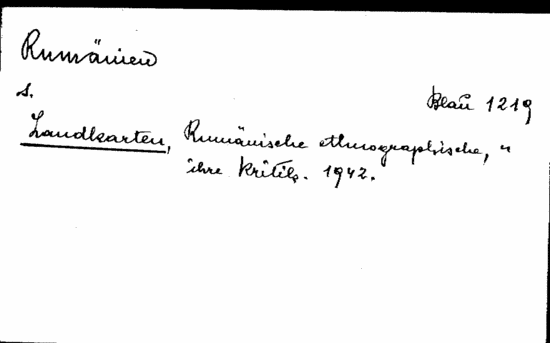 Rumänien
s.
Blau 1219
Landkarten, Rumänische ethnographische, u
ihre Kritik. 1942.